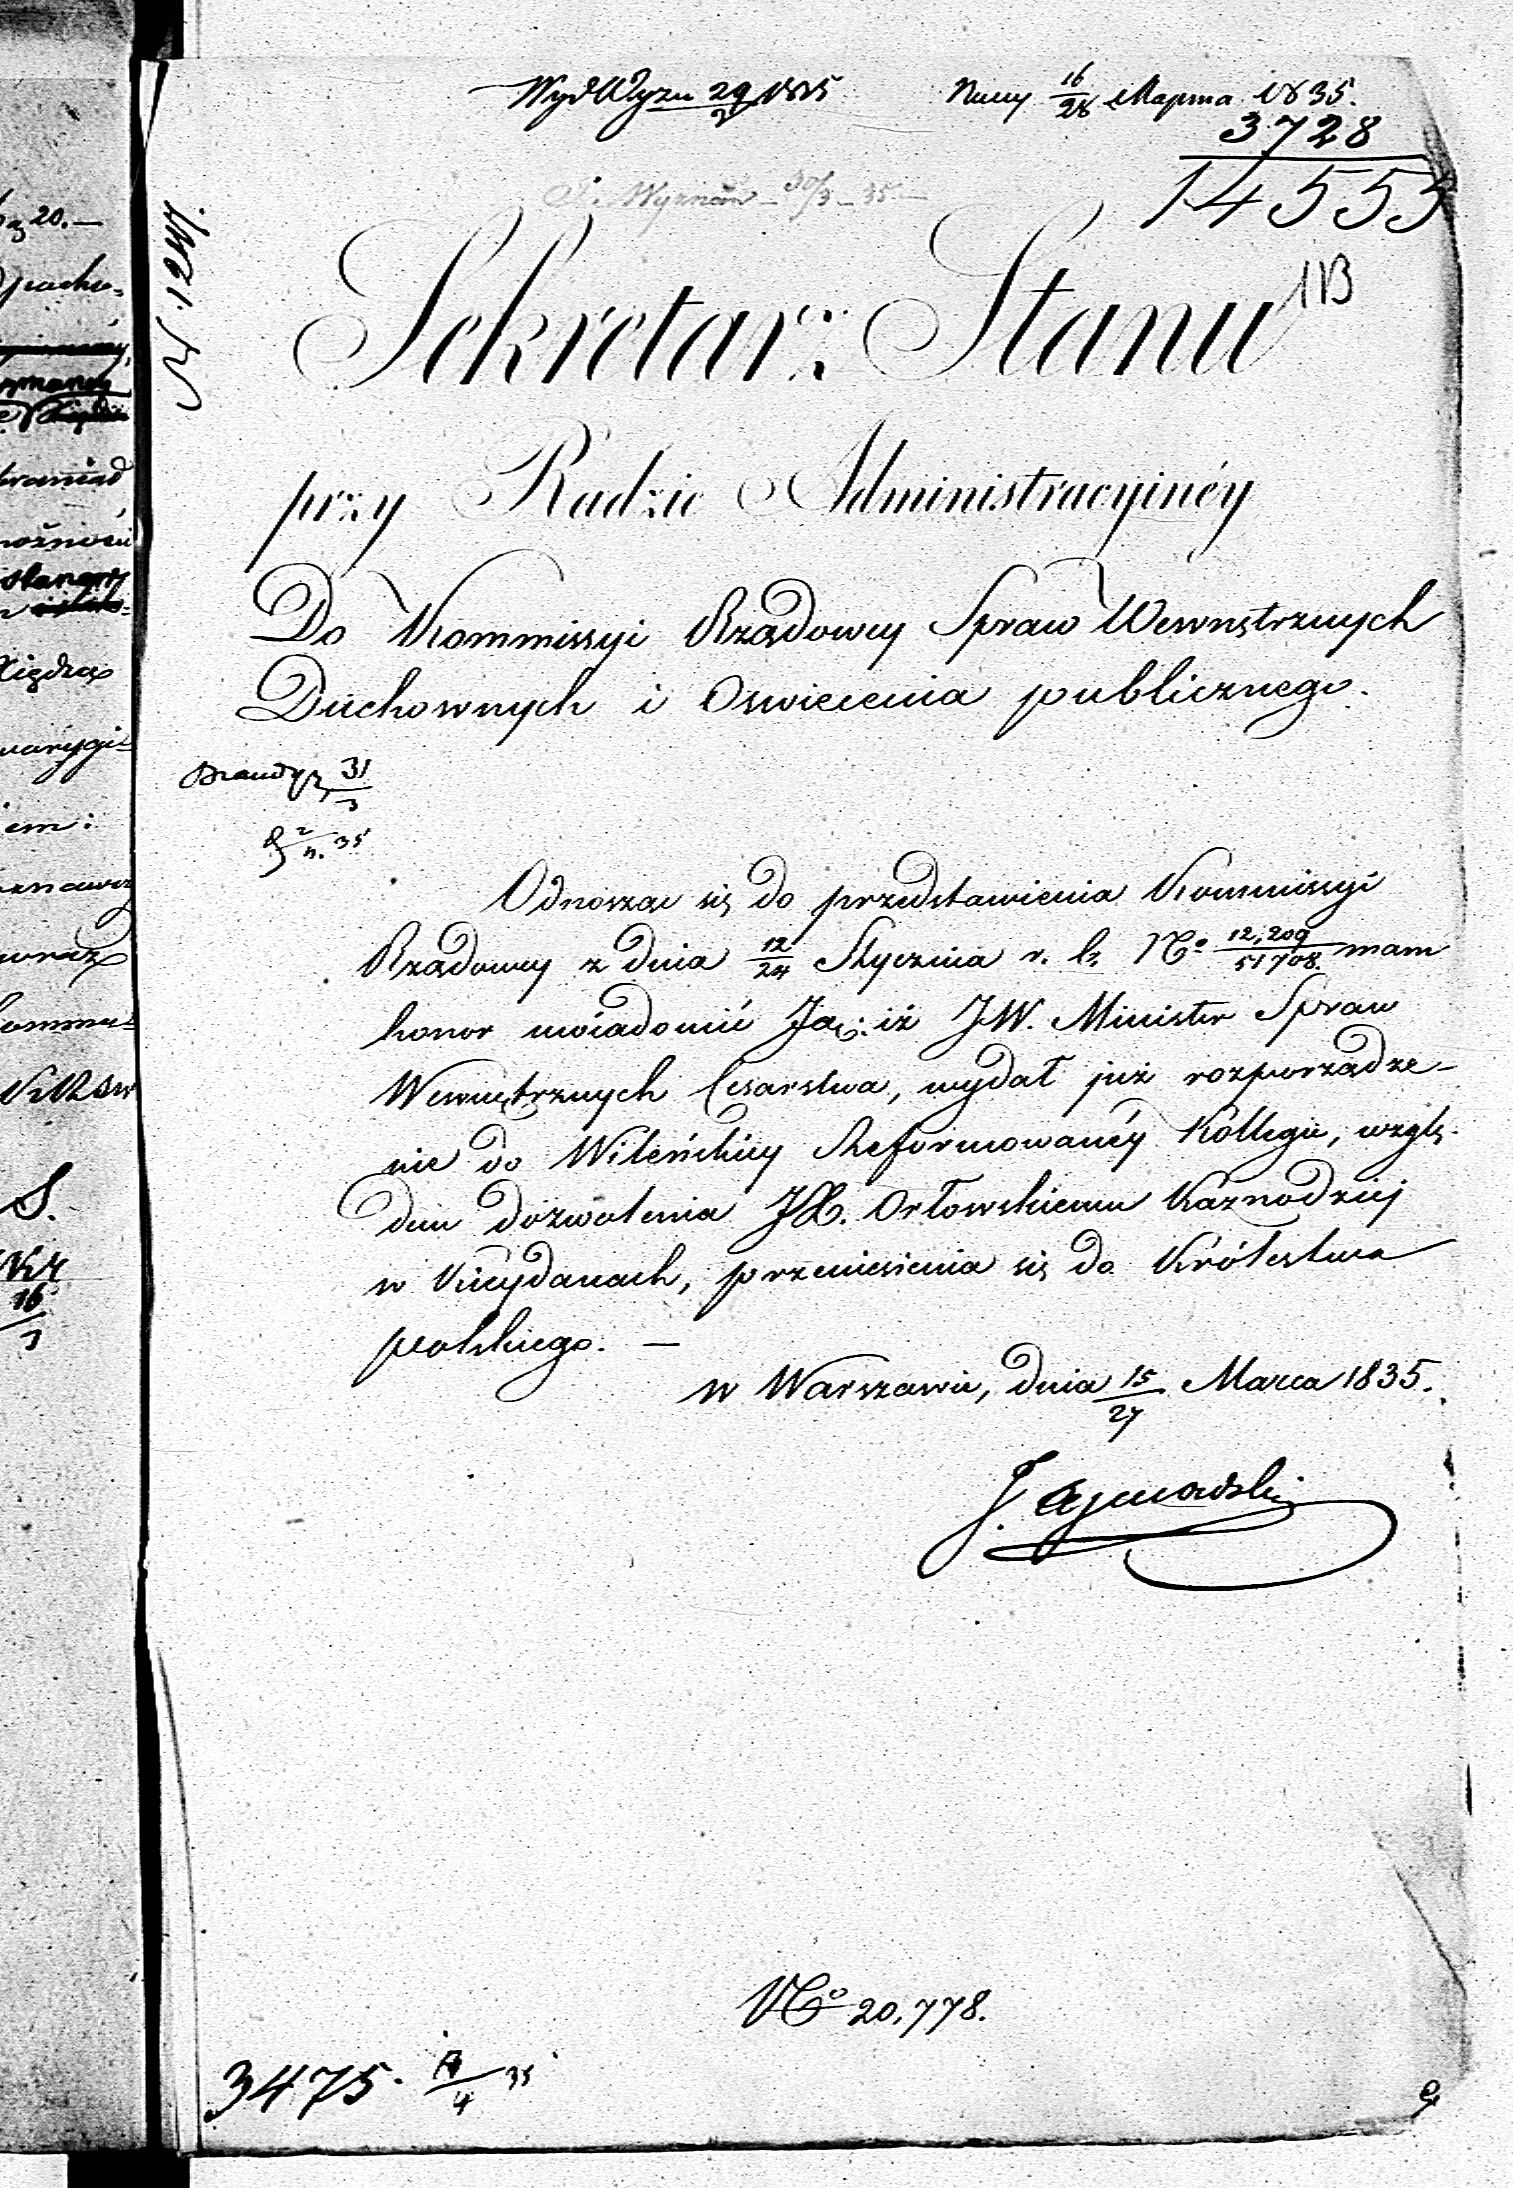 29 1835
16/28 Марта 1835.
3728
14553
Wyznań 30/3 35
Sekretarz Stanu
przy Radzie Administracyinéy
Do Kommissyi Rządowey Spraw Wewnętrznych
Duchownych i Oswiecenia publicznego.
31/3
2/4. 35
Odnosząc się do przedstawienia Kommissyi
Rządowey z dnia 12/24 Stycznia r. b. No. 12,209/51708. mam
honor uwiadomić Ją; iż JW. Minister Spraw
Wewnętrznych Cesarstwa, wydał już rozporządze-
nie do Wileńskiey Reformowanéy Kollegii, wzglę-
dem dozwolenia JX. Orłowskiemu Kaznodziei
w Kieydanach, przeniesienia się do Królestwa
polskiego. —
w Warszawie, dnia 15/27 Marca 1835.
J. Tymowski
No 20,778.
3475. /4 35